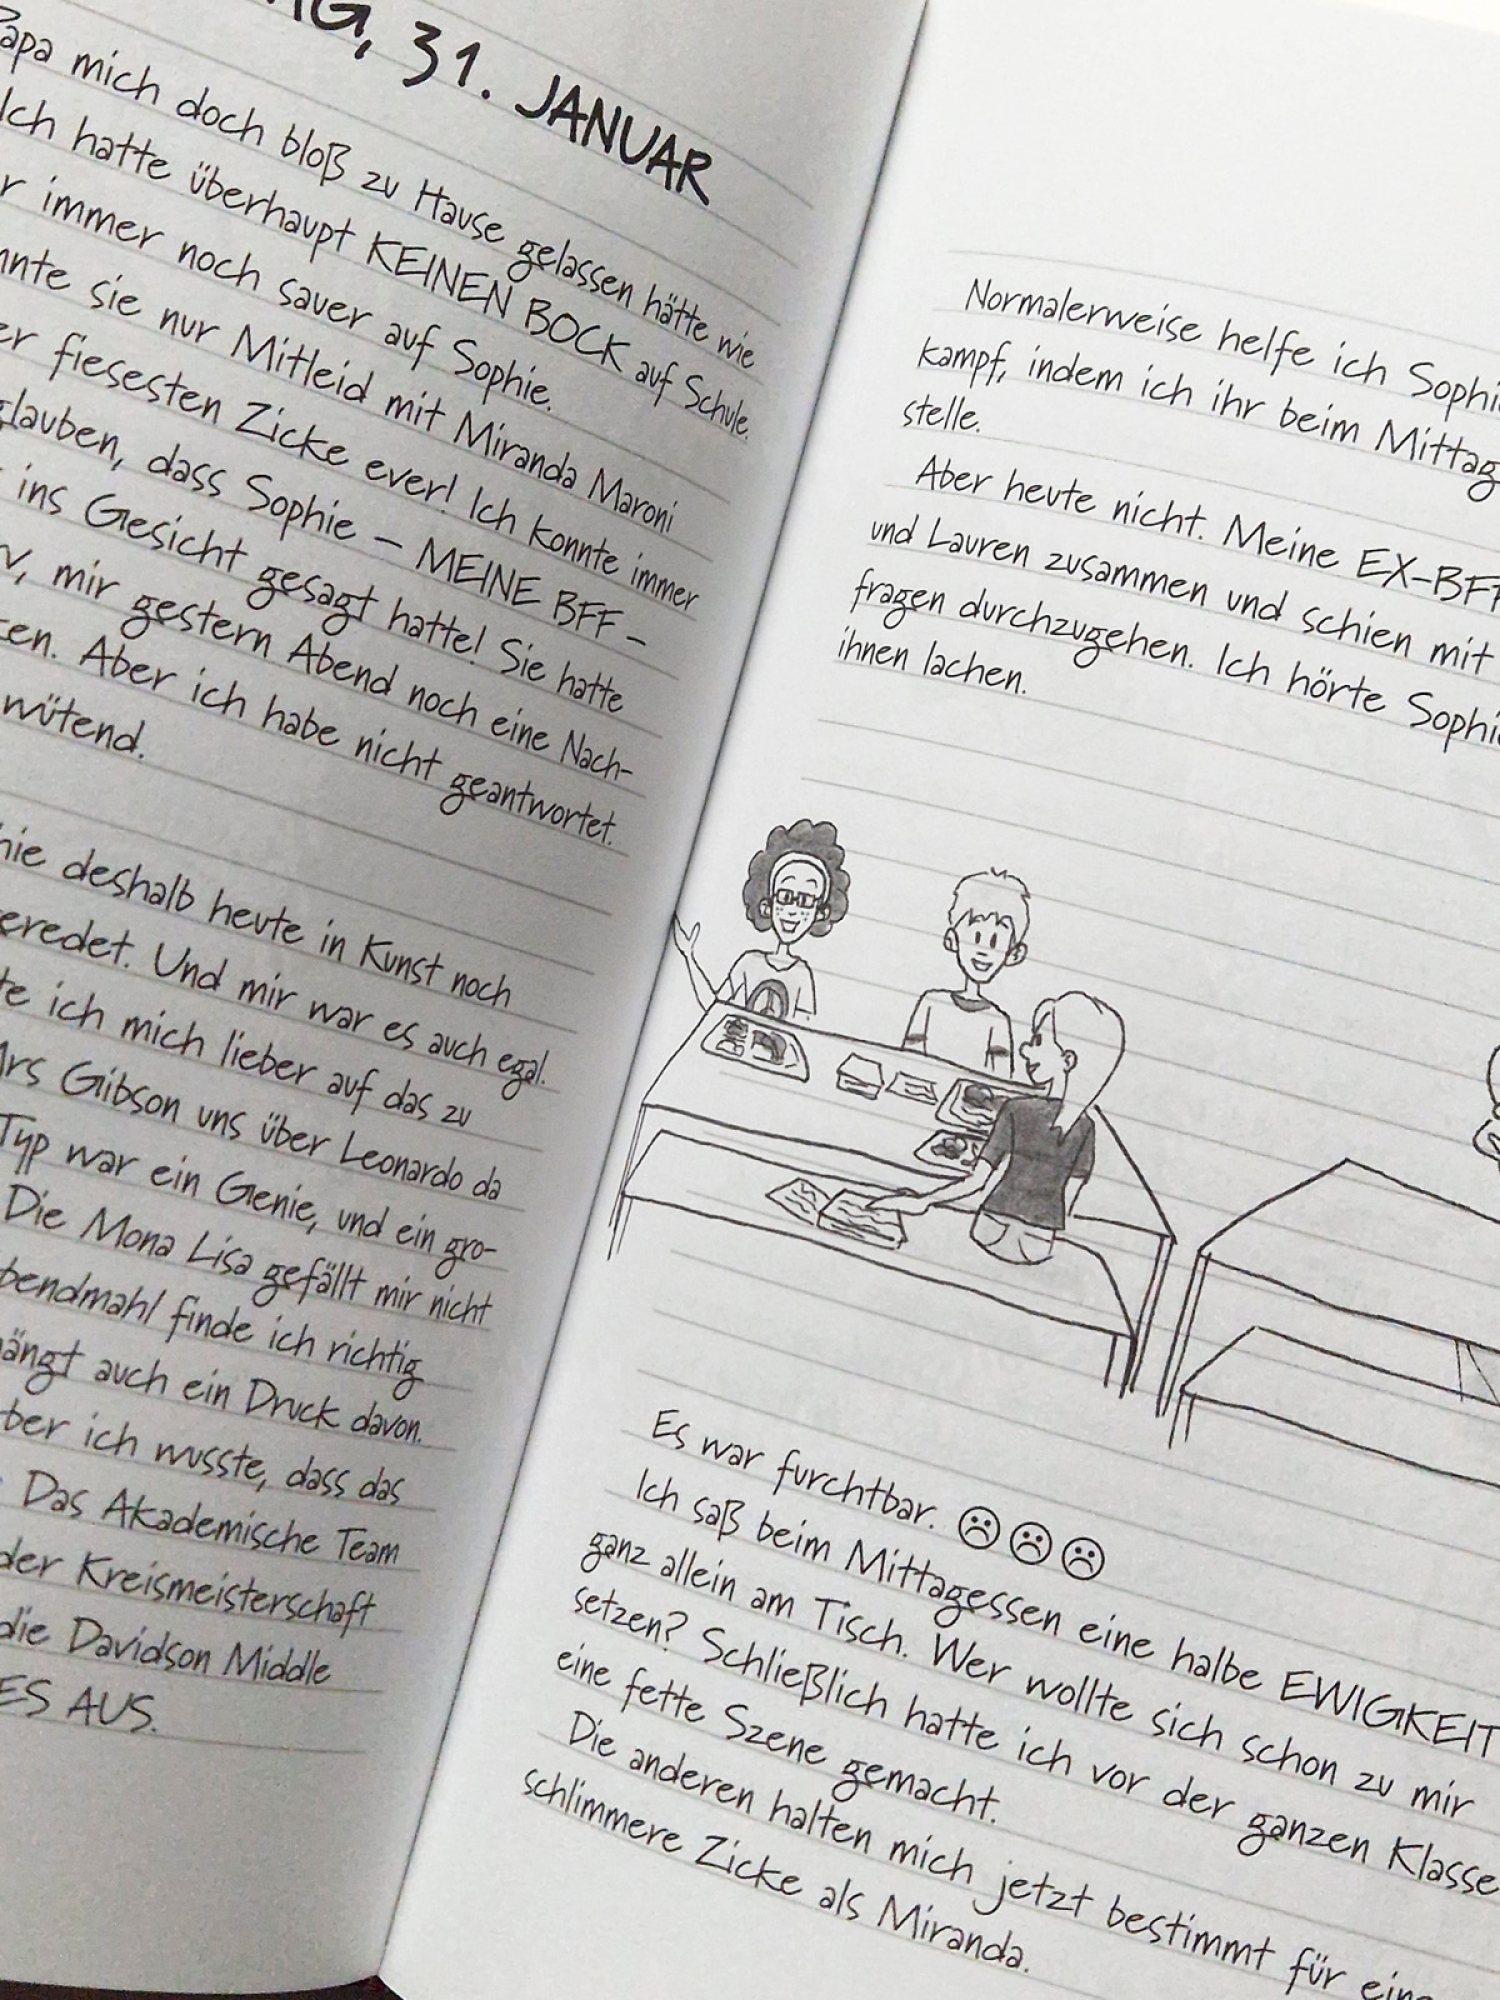 31. JANUAR
Papa mich doch bloß zu Hause gelassen hätte wie
Ich hatte überhaupt KEINEN BOCK auf Schule.
immer noch sauer auf Sophie.
sie nur Mitleid mit Miranda Maroni
fiesesten Zicke ever! Ich konnte immer
glauben, dass Sophie – MEINE BFF –
ins Gesicht gesagt hatte! Sie hatte
mir gestern Abend noch eine Nach-
Aber ich habe nicht geantwortet.
wütend.
deshalb heute in Kunst noch
Und mir war es auch egal.
ich mich lieber auf das zu
Mrs Gibson uns über Leonardo da
Typ war ein Genie, und ein gro-
Die Mona Lisa gefällt mir nicht
finde ich richtig
auch ein Druck davon.
ich wusste, dass das
Das Akademische Team
der Kreismeisterschaft
die Davidson Middle
AUS.
Normalerweise helfe ich
kampf, indem ich ihr beim
stelle.
Aber heute nicht. Meine
und Lauren zusammen und schien mit
fragen durchzugehen. Ich hörte
ihnen lachen.
Es war furchtbar. ☹☹☹
Ich saß beim Mittagessen eine halbe EWIGKEIT
ganz allein am Tisch. Wer wollte sich schon zu mir
setzen? Schließlich hatte ich vor der ganzen Klasse
eine fette Szene gemacht.
Die anderen halten mich jetzt bestimmt für
schlimmere Zicke als Miranda.